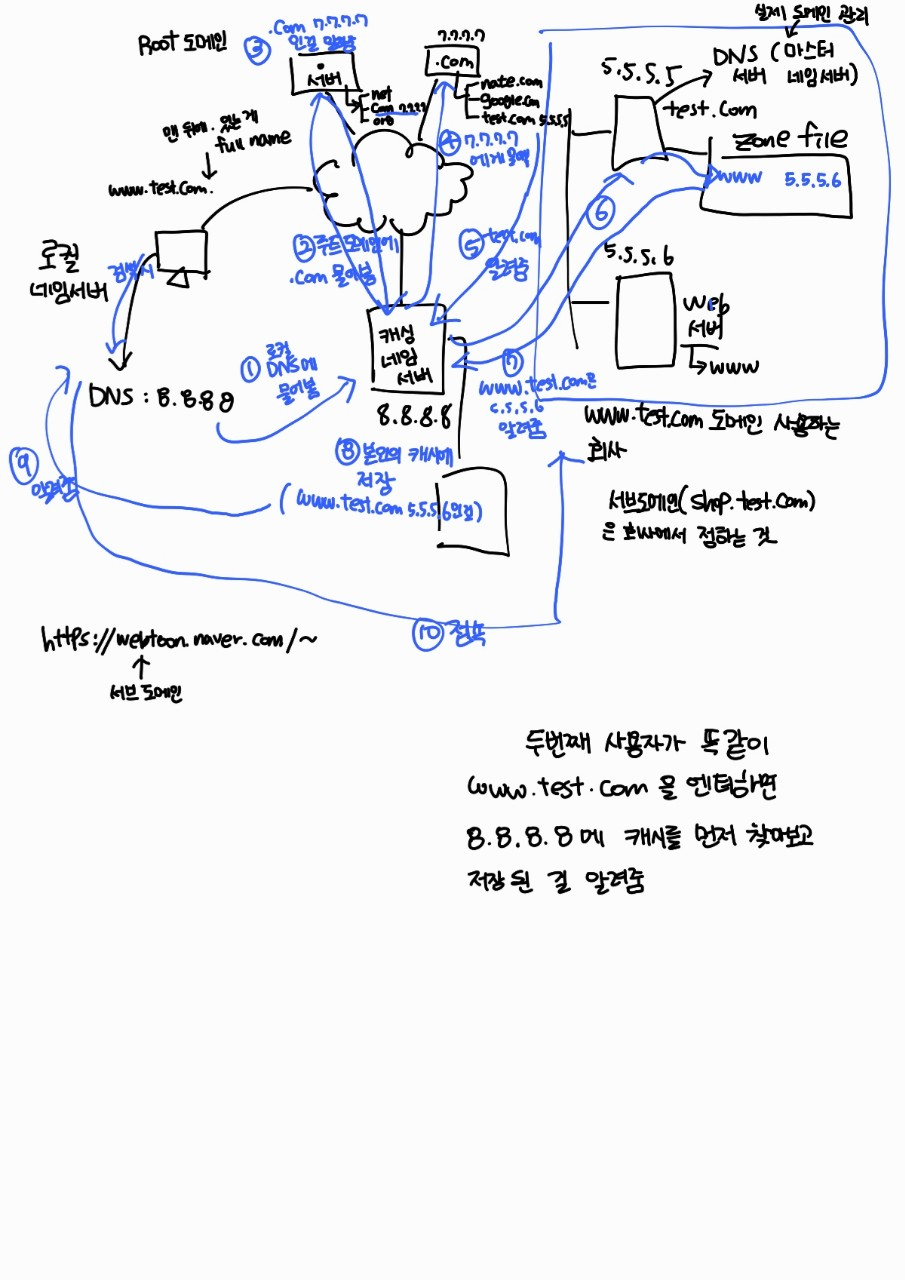 Root 도메인
③ .com 7.7.7.7
인걸 알려줌
.
서버
net
com 7.7.7.7
org
7.7.7.7
.com
nate.com
google.com
test.com 5.5.5.5
④ 7.7.7.7
에게 물어봄
실제 도메인 관리
DNS (마스터
서버 네임서버)
5.5.5.5
test.com
zone file
www 5.5.5.6
맨 뒤에 . 있는 게
full name
www.test.com.
로컬
네임서버
검색시
DNS : 8.8.8.8
① 로컬
DNS에
물어봄
② 루트 도메인에
.com 물어봄
⑤ test.com
알려줌
⑥
캐싱
네임
서버
8.8.8.8
⑦
www.test.com은
5.5.5.6
알려줌
5.5.5.6
Web
서버
www
www.test.com 도메인 사용하는
회사
⑧ 본인의 캐시에
저장
(www.test.com 5.5.5.6인걸)
⑨
알려줌
서브도메인(shop.test.com)
은 회사에서 정하는 것
⑩ 접속
https://webtoon.naver.com/~
서브 도메인
두번째 사용자가 똑같이
www.test.com 을 엔터하면
8.8.8.8에 캐시를 먼저 찾아보고
저장된 걸 알려줌